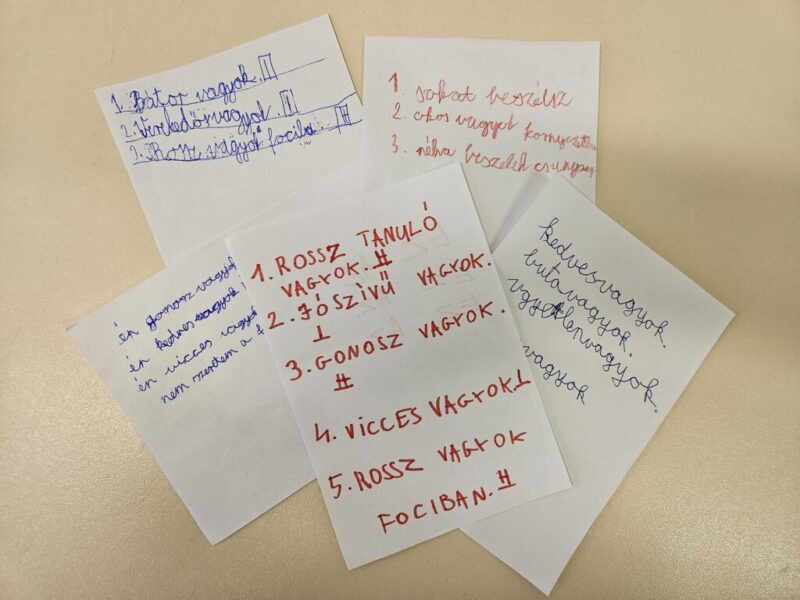 1. Bátor vagyok. I
2. Verekedősvagyok. I
3. Rossz vagyok fociba. H
1. sokat beszélsz
2. okos vagyok
3. néha beszélek csunyán
én gonosz vagyok
én kedves vagyok
én vicces vagyok
nem szeretem a
1. ROSSZ TANULÓ
VAGYOK. H
2. JÓSZIVŰ VAGYOK.
I
3. GONOSZ VAGYOK.
H
4. VICCES VAGYOK I
5. ROSSZ VAGYOK
FOCIBAN. H
kedvesvagyok.
butavagyok.
ügyetlenvagyok.
vagyok